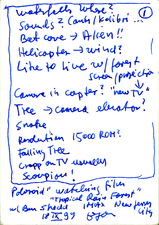 Waterfalls where?
①
Sounds? (ants/Kolibri...
Bat cove → Alien!!
Helicopter → wind?
Like to live w/ forest
screen/projection
Camera in copter? "new TV"
Tree → camera elevator?
Snake
Resolution 15000 ROM?
Falling Tree
on TV usually
Scorpions!
Polaroid watching film
"Tropical Rain Forest"
w/ Ben Shedd IMAX New Jersey
18 IX 93 City